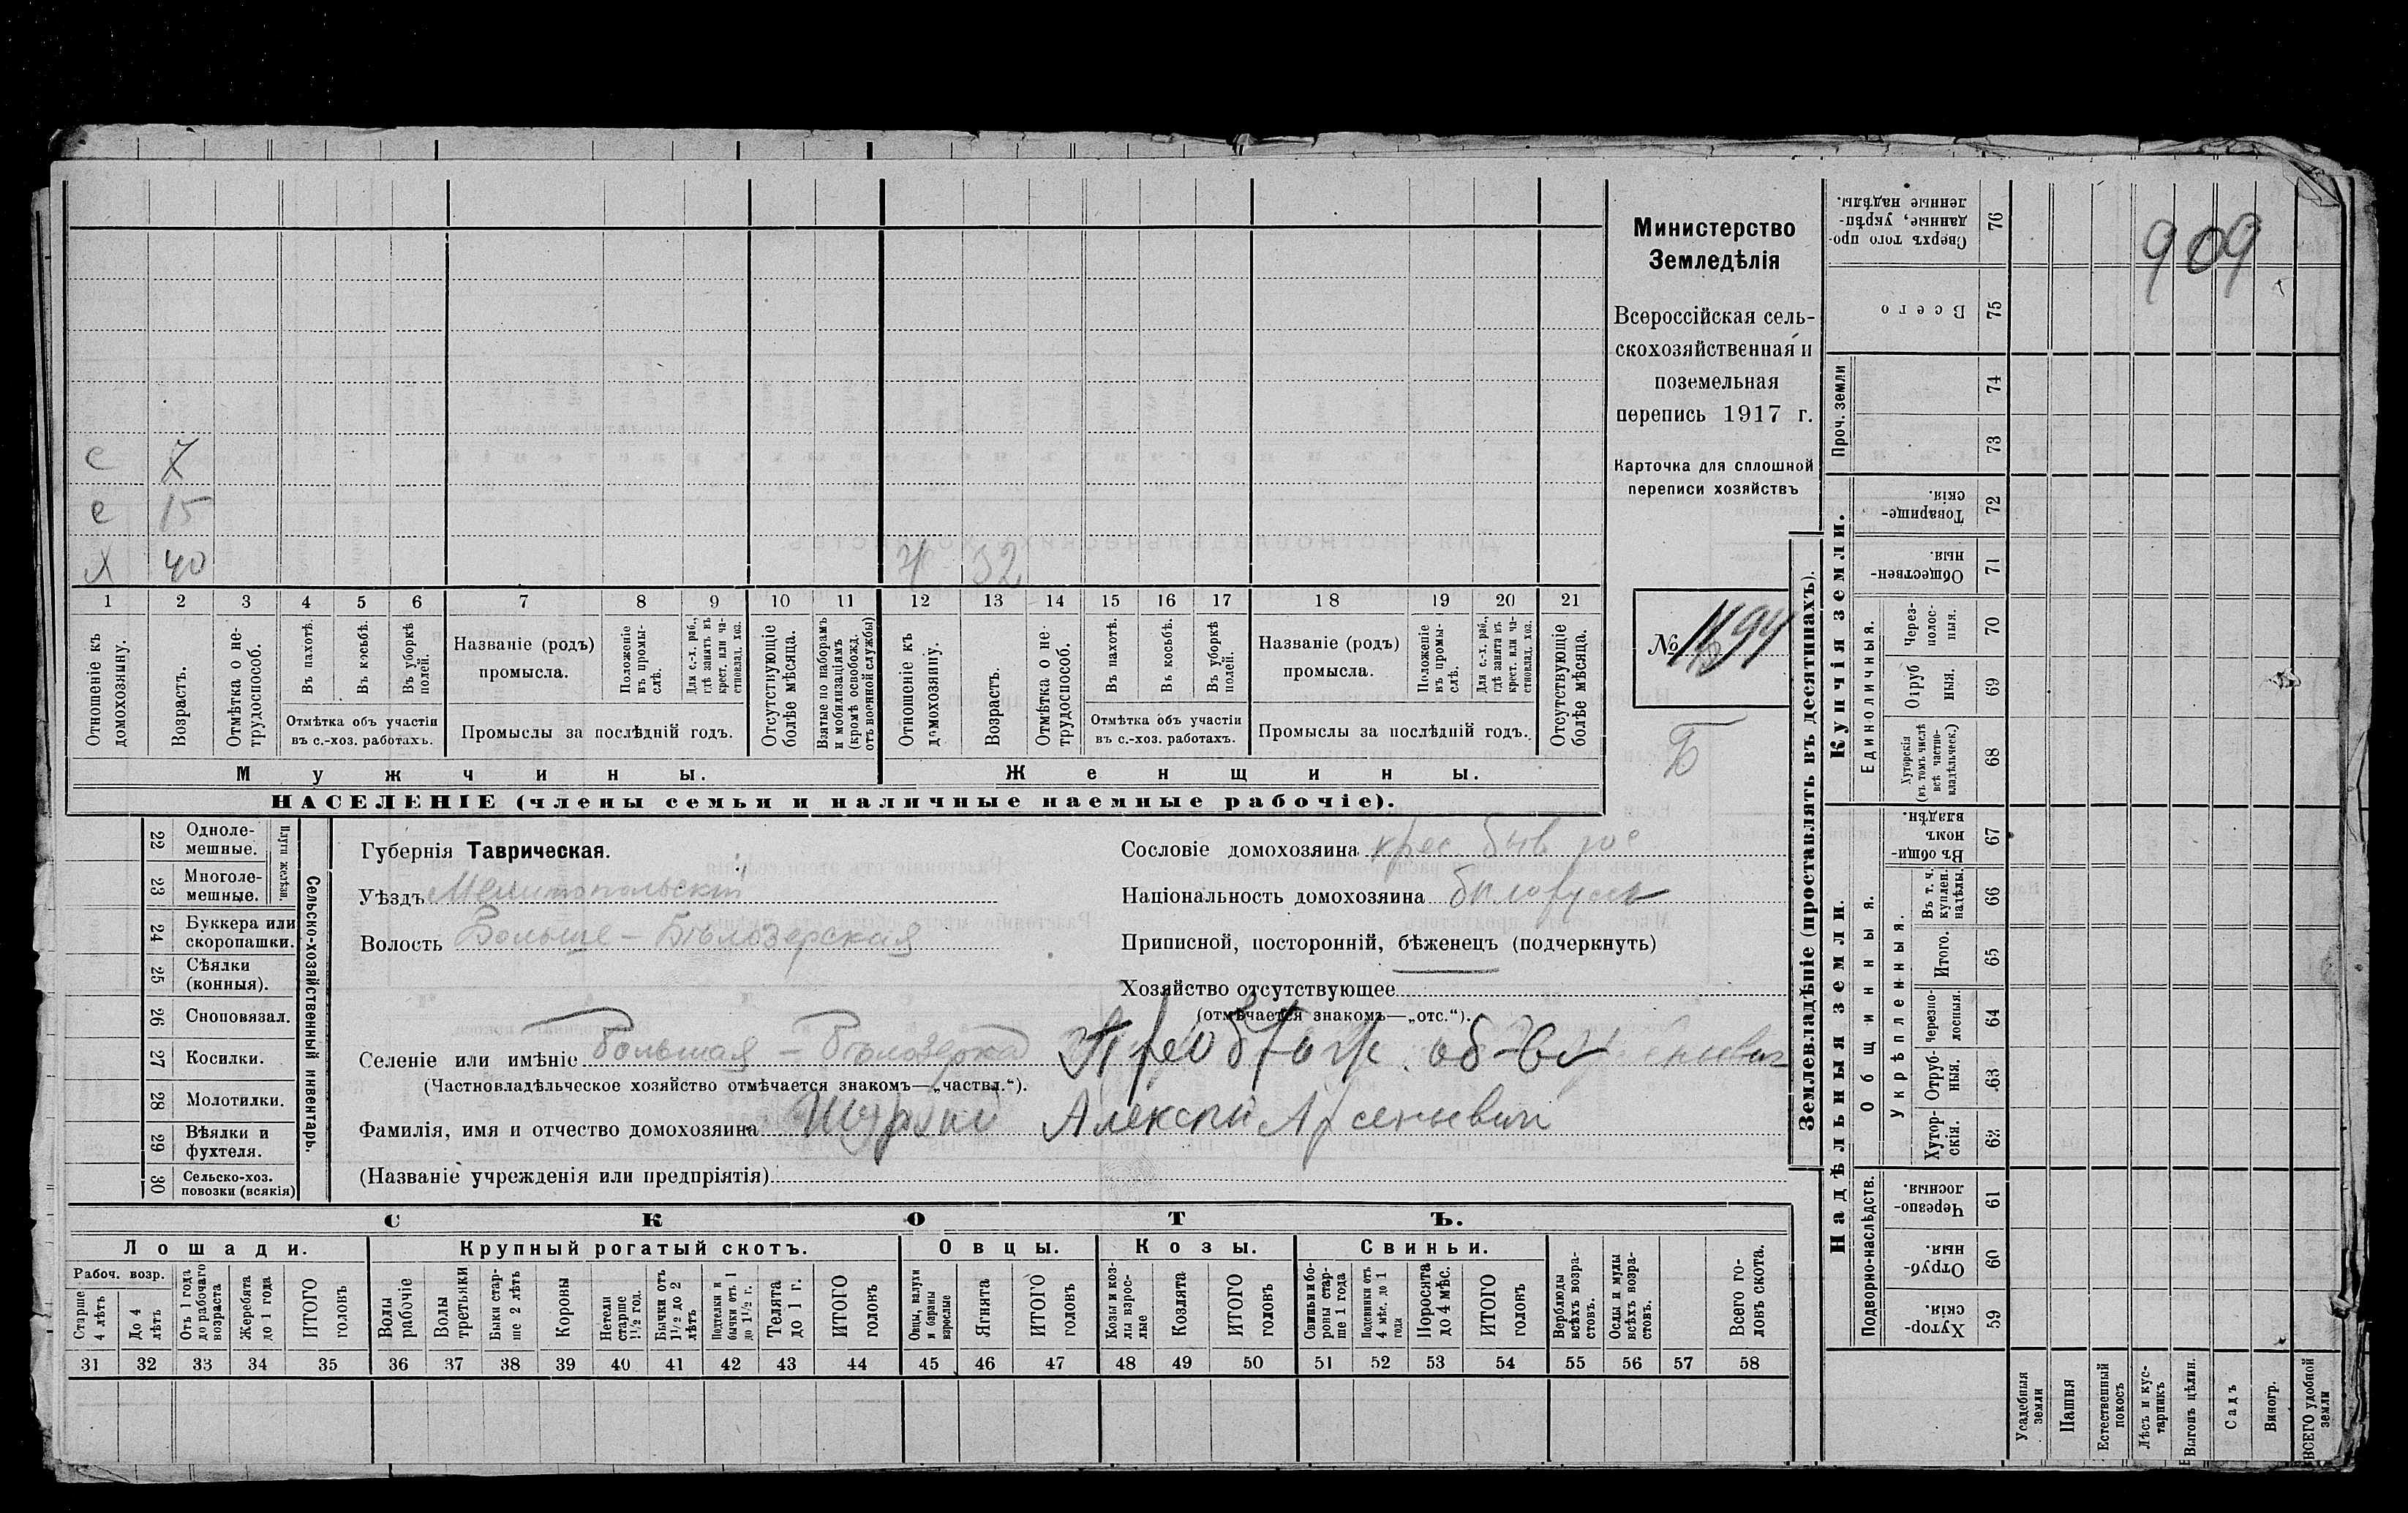 909
Министерство
Земледѣлія
Всероссійская сель-
скохозяйственная и
поземельная
перепись 1917 г.
Карточка для сплошной
переписи хозяйствъ
№ 94
Б
с 7
с 15
х 40 ж 32
1 2 3 4 5 6 7 8 9 10 11 12 13 14 15 16 17 18 19 20 21
Отношеніе къ домохозяину.
Возрастъ.
Отмѣтка о не-трудоспособ.
Въ пахотѣ.
Въ косьбѣ.
Въ уборкѣ полей.
Отмѣтка объ участіи
въ с.-хоз. работахъ.
Названіе (родъ)
промысла.
Положеніе въ промы-слѣ.
Для с.-х. раб., гдѣ занятъ въ крест. или ча-стновлад. хоз.
Промыслы за послѣдній годъ.
Отсутствующіе болѣе мѣсяца.
Взятые по наборамъ и мобилизаціямъ (кромѣ освобожд. отъ военной службы)
Отношеніе къ домохозяину.
Возрастъ.
Отмѣтка о не-трудоспособ.
Въ пахотѣ.
Въ косьбѣ.
Въ уборкѣ полей.
Отмѣтка объ участіи
въ с.-хоз. работахъ.
Названіе (родъ)
промысла.
Положеніе въ промы-слѣ.
Для с.-х. раб., гдѣ занята въ крест. или ча-стновлад. хоз.
Промыслы за послѣдній годъ.
Отсутствующіе болѣе мѣсяца.
Мужчины. Женщины.
НАСЕЛЕНІЕ (члены семьи и наличные наемные рабочіе).
22 Одноле-мешные.
23 Многоле-мешные.
Плуги желѣзн.
24 Буккера или скоропашки.
25 Сѣялки (конныя).
26 Сноповязал.
27 Косилки.
28 Молотилки.
29 Вѣялки и фухтеля.
30 Сельско-хоз. повозки (всякія)
Сельско-хозяйственный инвентарь.
Губернія Таврическая.
Уѣздъ Мелитопольскій
Волость Больше-Бѣлозерская
Сословіе домохозяина крес. быв гос
Національность домохозяина бѣлорусъ
Приписной, посторонній, бѣженецъ (подчеркнуть)
Хозяйство отсутствующее
(отмѣчается знакомъ—„отс.“).
Селеніе или имѣніе Большая-Бѣлозерка об-во
(Частновладѣльческое хозяйство отмѣчается знакомъ—„частвл.“).
Фамилія, имя и отчество домохозяина Алексѣй Арсеньевич
(Названіе учрежденія или предпріятія)
СКОТЪ.
Лошади. Крупный рогатый скотъ. Овцы. Козы. Свиньи.
Рабоч. возр.
Старше 4 лѣтъ
До 4 лѣтъ
Отъ 1 года до рабочаго возраста
Жеребята до 1 года
ИТОГО головъ
Волы рабочіе
Волы третьяки
Быки стар-ше 2 лѣтъ
Коровы
Нетели старше 1½ год.
Бычки отъ 1½ до 2 лѣтъ
Подтелки и бычки отъ 1 до 1½ г.
Телята до 1 г.
ИТОГО головъ
Овцы, валухи и бараны взрослые
Ягнята
ИТОГО головъ
Козы и коз-лы взрос-лые
Козлята
ИТОГО головъ
Свиньи и бо-ровы стар-ше 1 года
Подсвинки отъ 4 мѣс. до 1 года
Поросята до 4 мѣс.
ИТОГО головъ
Верблюды всѣхъ возра-стовъ.
Ослы и мулы всѣхъ возра-стовъ.
Всего го-ловъ скота.
31 32 33 34 35 36 37 38 39 40 41 42 43 44 45 46 47 48 49 50 51 52 53 54 55 56 57 58
Землевладѣніе (проставлять въ десятинахъ).
Надѣльныя земли. Купчія земли. Проч. земли
Подворно-наслѣдств.
Общинныя.
Укрѣпленныя.
Единоличныя.
Хутор-скія. 59
Отруб-ныя. 60
Черезпо-лосныя. 61
Хутор-скія. 62
Отруб-ныя. 63
Черезпо-лосныя. 64
Итого. 65
Въ т. ч. куплен. надѣлы. 66
Въ общи-номъ владѣн. 67
Хуторскія (въ томъ числѣ всѣ частно-владѣльческ.) 68
Отруб-ныя. 69
Через-полос-ныя. 70
Обществен-ныя. 71
Товарище-скія. 72
73
74
Всего 75
Сверхъ того про-данные, укрѣп-ленные надѣлы. 76
Усадебныя земли
Пашня
Естественный покосъ
Лѣсъ и кус-тарникъ
Выгонъ цѣлин.
Садъ
Виногр.
ВСЕГО удобной земли